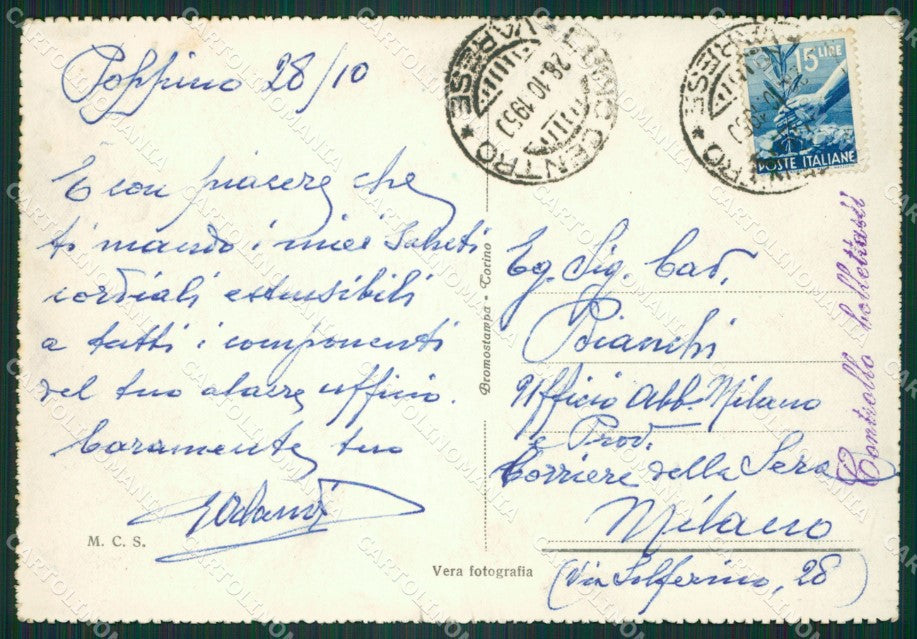 Poppino 28/10
È con piacere che
ti mando i miei saluti
cordiali estensibili
a tutti i componenti
del tuo alacre ufficio.
Caramente, tuo
M. C. S.
Vera fotografia
Bromostampa - Torino
LUINO CENTRO
* VARESE *
28.10.1950
CENTRO
* VARESE *
15 LIRE
POSTE ITALIANE
Eg. Sig. Cav.
Bianchi
Ufficio Abb. Milano
e Prov.
Corriere della Sera
Milano
(Via Solferino, 28)
Controllo collettasil
CARTOLINOMANIA